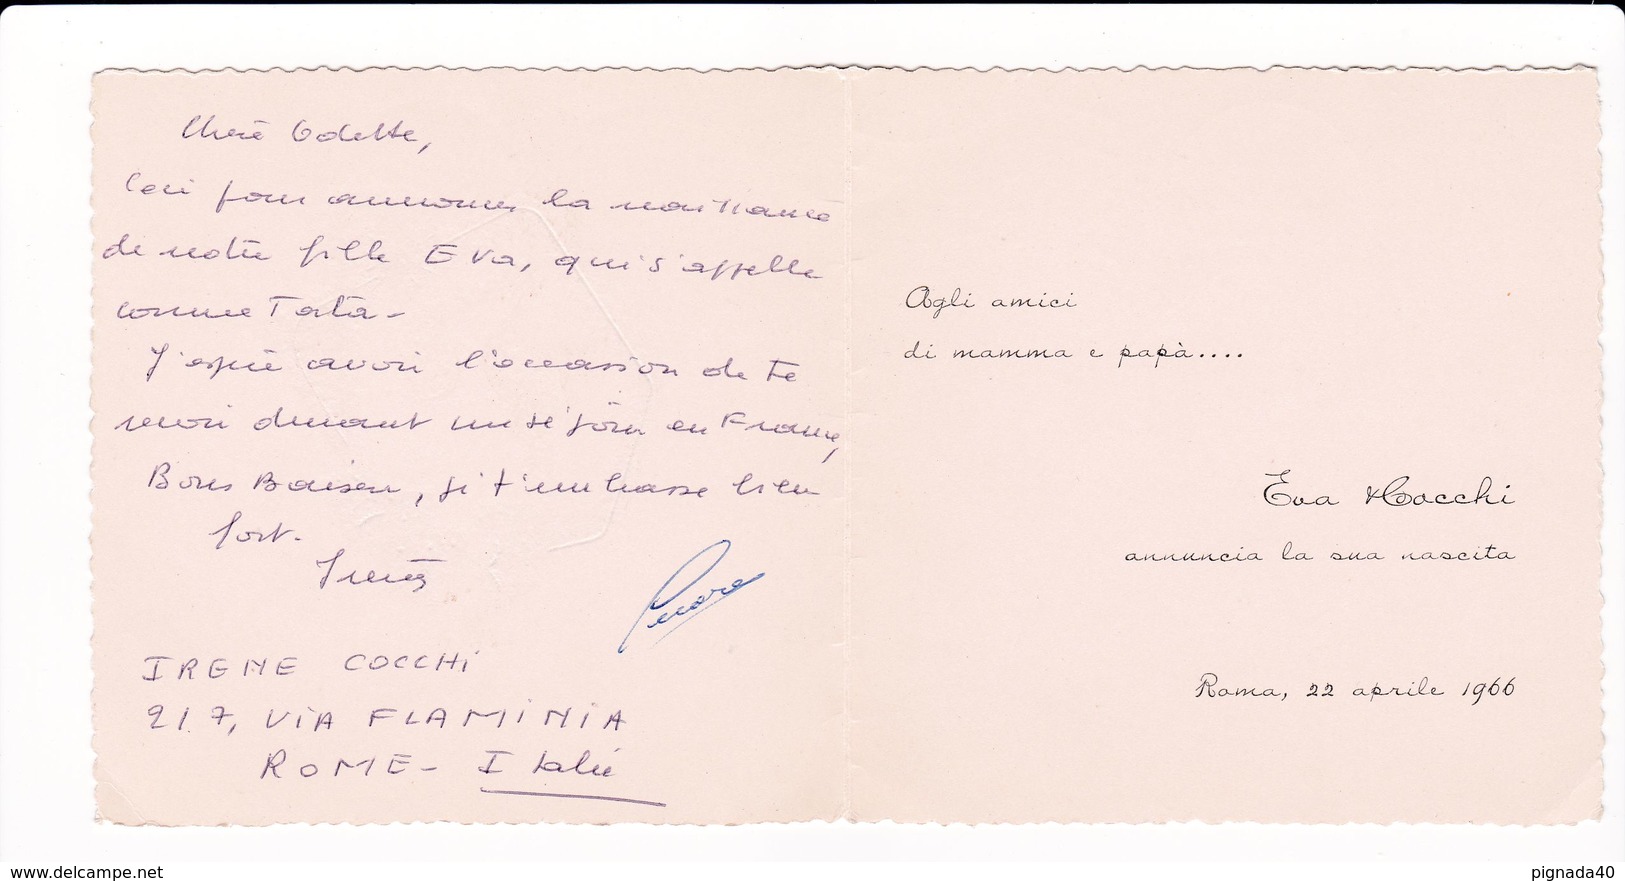 Chère Odette,
Ceci pour annoncer la naissance
de notre fille Eva, qui s'appelle
comme Tata -
J'espère avoir l'occasion de te
revoir durant un séjour en France,
Bons Baisers, je t'embrasse bien
fort.
Irène
IRENE COCCHI
217, VIA FLAMINIA
ROME - Italie
Agli amici
di mamma e papà....
Eva Cocchi
annuncia la sua nascita
Roma, 22 aprile 1966
www.delcampe.net
pignada40